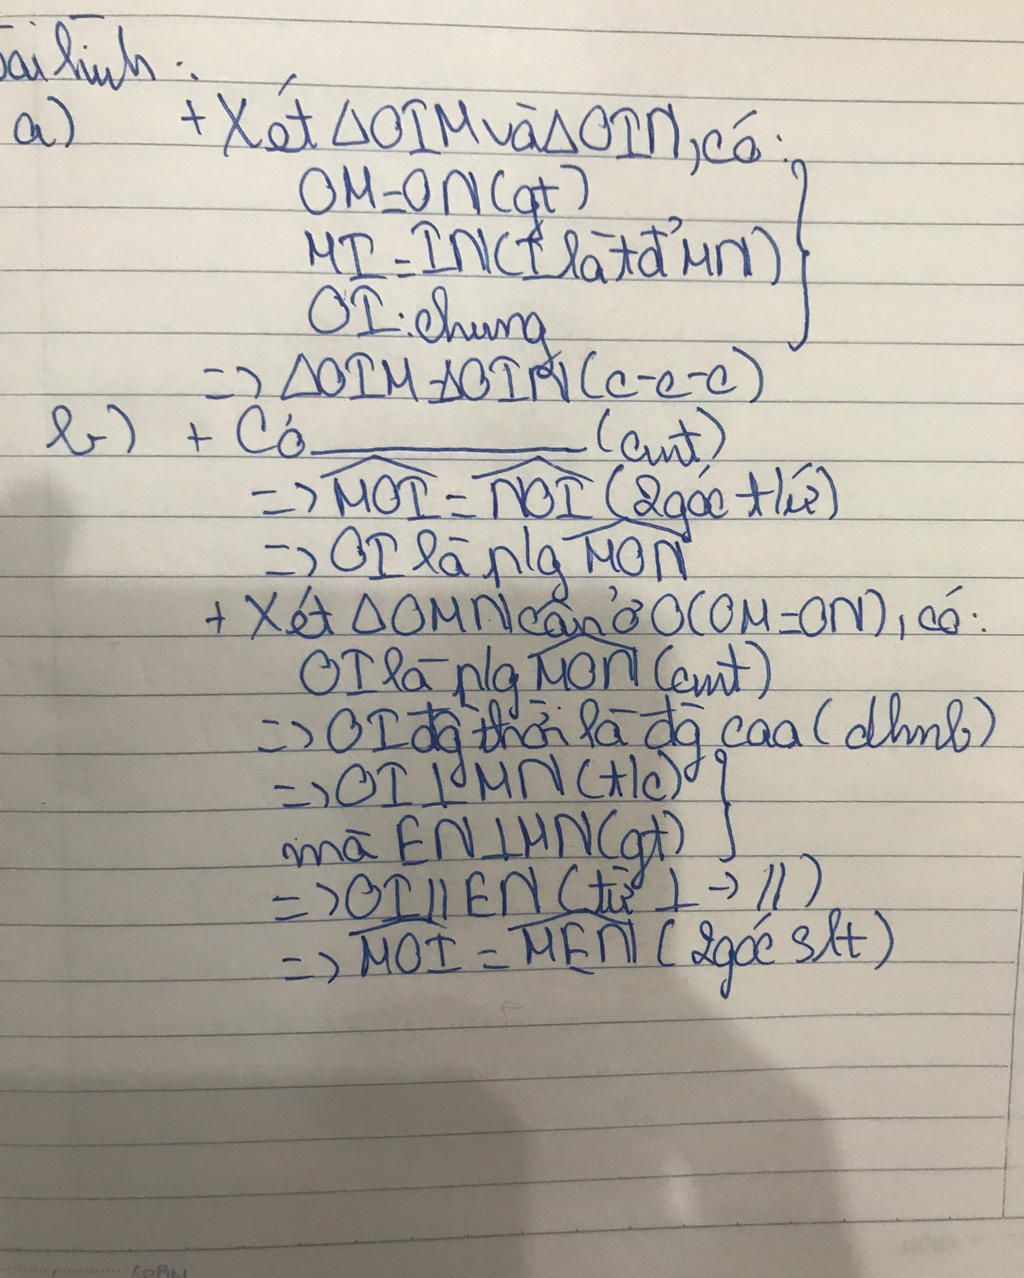 Bài hình:
a) + Xét ΔOIM và ΔOIN, có:
OM=ON(gt)
MI=IN(I là tđ' MN)
OI: chung
=> ΔOIM=ΔOIN(c-c-c)
b) + Có ________ (cmt)
=> MOI = NOI (2 góc t/ứ)
=> OI là p/g MON
+ Xét ΔOMN cân ở O(OM=ON), có:
OI là p/g MON (cmt)
=> OI đg thời là đg cao (dhnb)
=> OI ⊥ MN(t/c)
mà EN⊥MN(gt)
=> OI // EN (từ ⊥ → //)
=> MOI = MEN (2 góc slt)